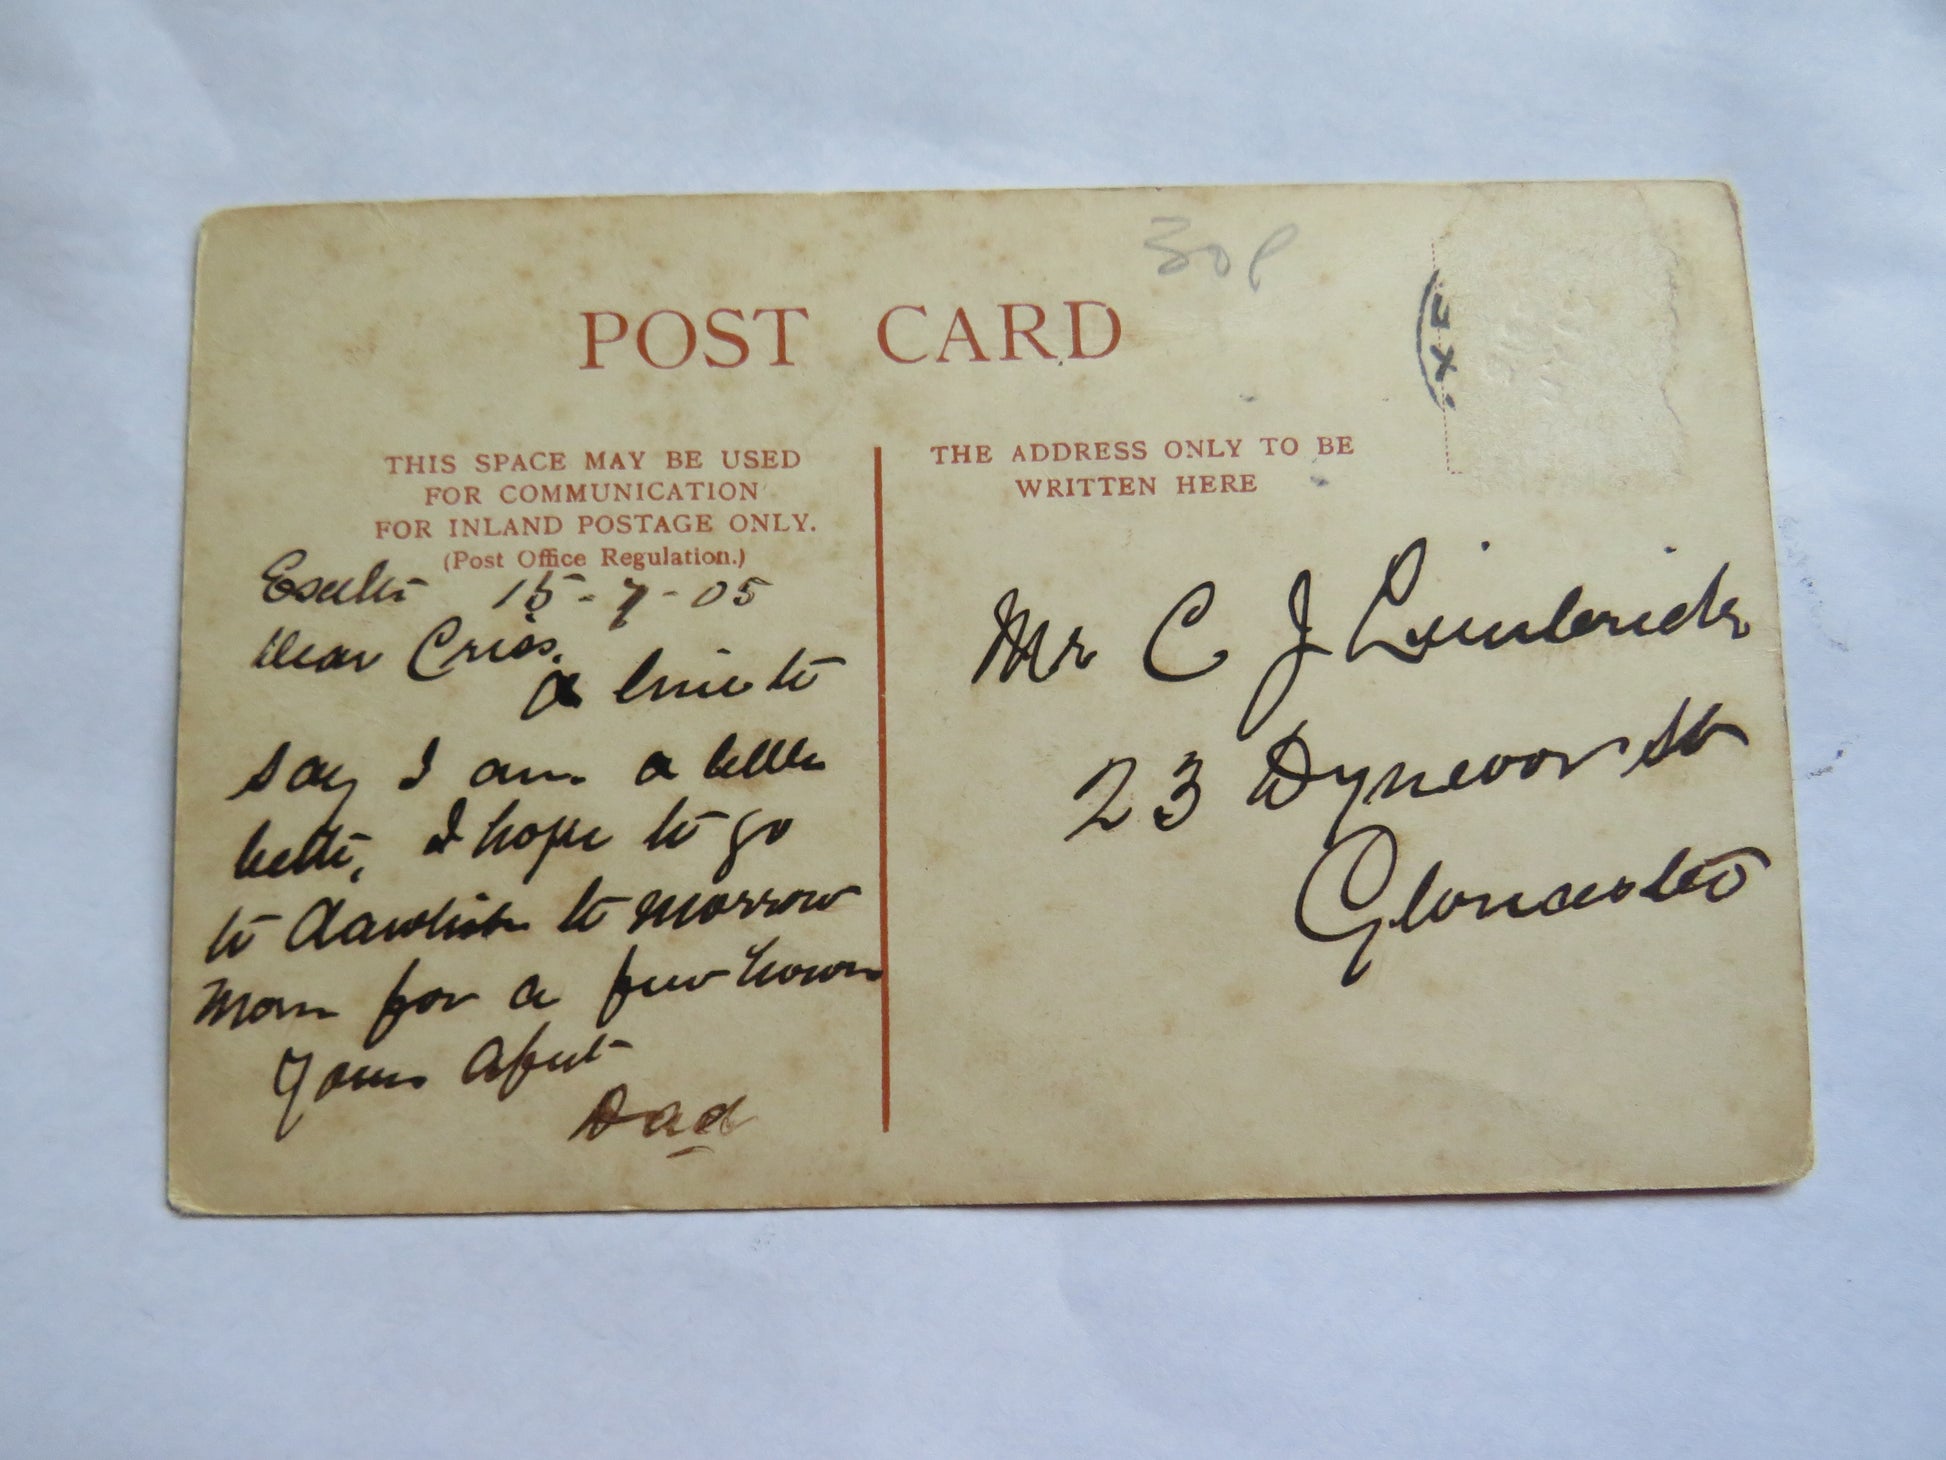 30p
POST CARD
EX
THIS SPACE MAY BE USED
FOR COMMUNICATION
FOR INLAND POSTAGE ONLY.
(Post Office Regulation.)
Exeter 15-7-05
Dear Criss,
a line to
say I am a little
better, I hope to go
to Dawlish to morrow
Morn for a few hours
Yours Afect
Dad
THE ADDRESS ONLY TO BE
WRITTEN HERE
Mr C J Limbrick
23 Dynevor St
Gloucester